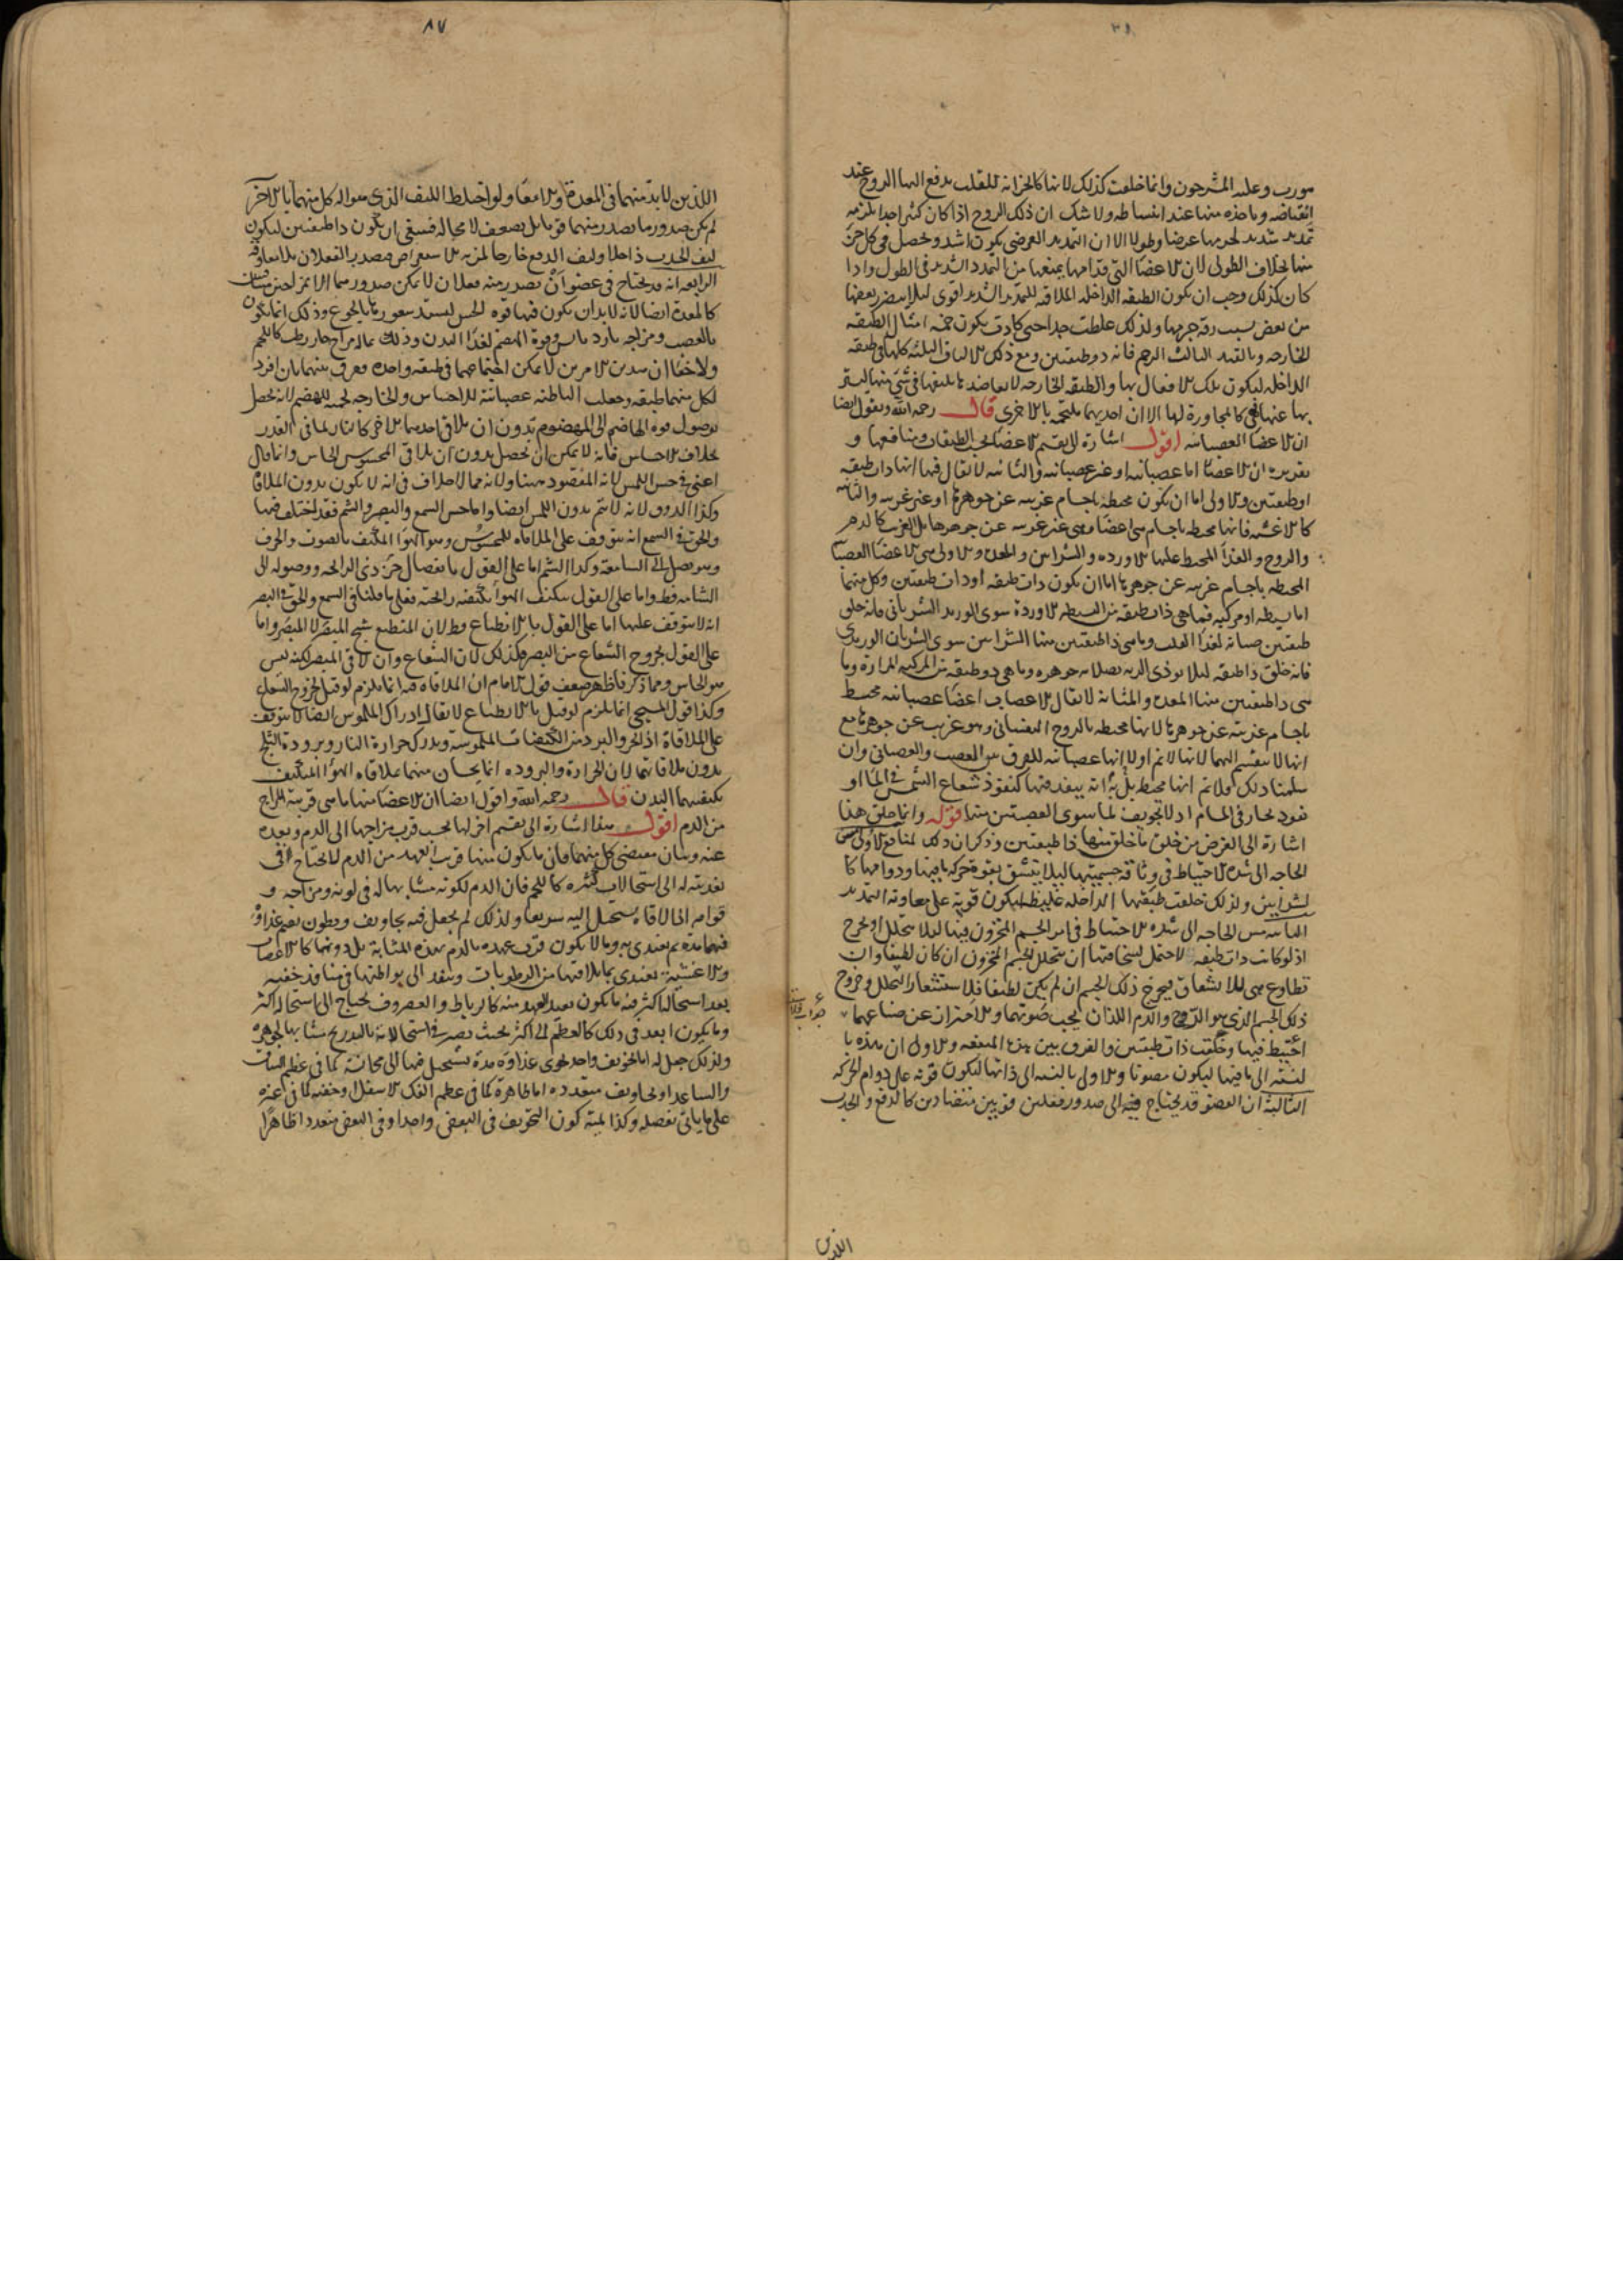 ٨٧
مورب وعليه المشرحون وانما خلقت كذلك لانها كالخزانه للقلب يدفع اليها الروح عند
انقباضه وياخذه منها عند انبساطه ولا شك ان ذلك الروح اذا كان كثيرا جدا يلزمه
تمديد شديد لجرمها عرضا وطولا الا ان التمديد العرضى يكون اشد ويحصل فى كل جزء
منها بخلاف الطولى لان الاعضا التى قدامها يمنعها من التمدد الشديد فى الطول واذا
كان كذلك وجب ان يكون الطبقه الداخله الملاقيه للتمديد الشديد اقوى ليلا
من بعض بسبب رقه جرمها ولذلك غلظت جدا حتى كادت يكون خمسه امثال الطبقه
الخارجه وبالقيد الثالث الرحم فانه ذو طبقتين ومع ذلك الالياف الثلثه كلها فى طبقته
الداخله ليكون تلك الافعال بها والطبقه الخارجه
بها عنها فهى كالمجاورة لها الا ان احديهما ملتحمه بالاخرى قال رحمه الله ونقول ايضا
ان الاعضا العصبانيه اقول اشارة الى تقسيم الاعضا بحسب الطبقات ومنافعها و
تقريره ان الاعضا اما عصبانيه او غير عصبانيه والثانيه لا يقال فيها انها ذات طبقه
او طبقتين والاولى اما ان يكون محيطه باجسام غريبه عن جوهرها او غير غريبه والثانيه
كالاغشيه فانها محيطه باجسام هى اعضا وهى غير غريبه عن جوهرها بل الغريب كالدم
والروح والغذا المحيط عليها الاورده والشرايين والمعده والاولى هى الاعضا العصبا
المحيطه باجسام غريبه عن جوهرها اما ان يكون ذات طبقه او ذات طبقتين وكل منهما
اما بسيطه او مركبه فما هى ذات طبقه من البسيطه الاوردة سوى الوريد الشريانى فانه خلق
طبقتين صيانه لغذا القلب وما هى ذا طبقتين منها الشرايين سوى الشريان الوريدى
فانه خلق ذا طبقه ليلا يوذى الريه بصلابه جوهره وما هى ذو طبقه من المركبه المرارة وما
هى ذا طبقتين منها المعده والمثانه لا يقال الاعصاب اعضا عصبانيه محيط
باجسام غريبه عن جوهرها لانها محيطه بالروح النفسانى وهو غريب عن جوهرها مع
انها لا تنقسم اليهما لانها لا نم اولا انها عصبانيه للفرق بين العصب والعصبانى وان
سلمنا ذلك فلا نم انها محيط به بل انه ينفذ فيها كنفوذ شعاع الشمس فى الما او
نفوذ بخار فى المسام اذ لا تجويف لما سوى العصبتين منها قوله وانما خلق هذا
اشارة الى الغرض من خلق ما خلق منها ذا طبقتين وذكر ان ذلك لمنافع الاولى مس
الحاجه الى شده الاحتياط فى وثاقه جسميتها ليلا ينشق بقوة حركه ما فيها ودوامها كا
لشرايين ولذلك خلقت طبقتها الداخله غليظه ليكون قوية على معاونه التمديد
الثانيه مس الحاجه الى شده الاحتياط فى امر الجسم المخزون فيها ليلا يتحلل او يخرج
اذ لو كانت ذات طبقه لاحتمل لسخافتها ان يتحلل الجسم المخزون ان كان لطيفا وان
تطاوع هى للانشقاق فيخرج ذلك الجسم ان لم يكن لطيفا فلاستشعار التحلل وخروج
ذلك الجسم الذى هو الروح والدم اللذان يجب صونهما والاحتراز عن ضياعهما
احتيط فيها وخلقت ذات طبقتين والفرق بين هذه المنفعه والاولى ان هذه با
لنسبه الى ما فيها ليكون مصونا والاولى بالنسبه الى ذاتها ليكون قويه على دوام الحركه
الثالثه ان العضو قد يحتاج فيه الى صدور فعلين قويين متضادين كالدفع والجذب
اللذين
اللذين لابد منهما فى المعدة والامعا ولو اختلط الليف الذى هو اله كل منهما بالاخر
لم يكن صدور ما يصدر منهما قويا بل يضعف لا محاله فينبغى ان يكون ذا طبقتين ليكون
ليف الجذب داخلا وليف الدفع خارجا
الرابعه انه قد يحتاج فى عضو ان يصدر منه فعلان لا يمكن صدورهما الا
كالمعدة ايضا لانه لابد ان يكون فيها قوه الحس ليستد شعورها بالجوع وذلك انما يكون
بالعصب ومزاجه بارد يابس وقوة الهضم لغذا البدن وذلك بما له مزاج حار رطب كاللحم
ولا خفا ان هذين الامرين لا يمكن اجتماعهما فى طبقه واحده ففرق بينهما بان افرد
لكل منهما طبقه وجعلت الباطنه عصبانية للاحساس والخارجه لحميه للهضم لانه يحصل
بوصول قوه الهاضم الى المهضوم بدون ان يلاقى احدهما الاخر كالنار لما فى القدر
بخلاف الاحساس فانه لا يمكن ان يحصل بدون ان يلاقى المحسوس الحاس وانما قال
اعنى فى حس اللمس لانه المقصود ههنا ولانه مما لا خلاف فى انه لا يكون بدون الملاقاه
وكذا الذوق لانه لا يتم بدون اللمس ايضا واما حس السمع والبصر والشم فقد اختلف فيها
والحق فى السمع انه يتوقف على الملاقاه للمحسوس وهو الهوا المكيف بالصوت والحرف
وهو يصل الى السامعة وكذا الشم اما على القول بانفصال جزء ذى الرائحه ووصوله الى
الشامه فظ واما على القول بتكيف الهوا بكيفيه رائحته فعلى ما قلنا فى السمع والحق فى البصر
انه لا يتوقف عليها اما على القول بالانطباع فظ لان المنطبع شبح المبصر لا المبصر واما
على القول بخروج الشعاع من البصر فكذلك لان الشعاع وان لاقى المبصر لكنه ليس
هو الحاس ومما ذكرنا ظهر ضعف قول الامام ان الملاقاه فيه انما يلزم لو قيل بخروج الشعاع
وكذا قول المسيحى انما يلزم لو قيل بالانطباع لا يقال ادراك الملموس ايضا لا يتوقف
على الملاقاة اذ الحر والبرد من الكيفيات الملموسة ويدرك حرارة النار وبرودة الثلج
بدون ملاقاتهما لان الحرارة والبروده انما يحسان منهما بملاقاه الهوا المتكيف
بكيفيتهما البدن قال رحمه الله واقول ايضا ان الاعضا منها ما هى قريبة المزاج
من الدم اقول هذا اشارة الى تقسيم اخر لها بحسب قرب مزاجها الى الدم وبعده
عنه وبيان مقتضى كل منهما فان ما يكون منها قريب العهد من الدم لا يحتاج فى
تغذيته له الى استحالات كثيره كاللحم فان الدم لكونه مشابها له فى لونه ومزاجه و
قوامه اذا لاقاه يستحيل اليه سريعا ولذلك لم يجعل فيه تجاويف وبطون يقيم غذاؤه
فيها مدة ثم يغتدى به وما لا يكون قرب عهده بالدم بهذه المثابة بل دونها كالاعصاب
والاغشية يغتدى بما يلاقيها من الرطوبات وينفذ الى بواطنها فى منافذ خفيه
بعد استحالة اكثر منه ما يكون بعيد العهد منه كالرباط والغضروف يحتاج الى استحاله اكثر
وما يكون ابعد فى ذلك كالعظم الى اكثر بحيث يصير فى استحالاته بالتدريج مشابها لجوهره
ولذلك جعل له اما تجويف واحد يحوى غذاؤه مدة يستحيل فيها الى مجانسته كما فى عظم الساق
والساعد او تجاويف متعدده اما ظاهرة كما فى عظم الفك الاسفل او خفيه كما فى غيره
على ما ياتى تفصيله وكذا لميته كون التجويف فى البعض واحدا وفى البعض متعددا ظاهرا